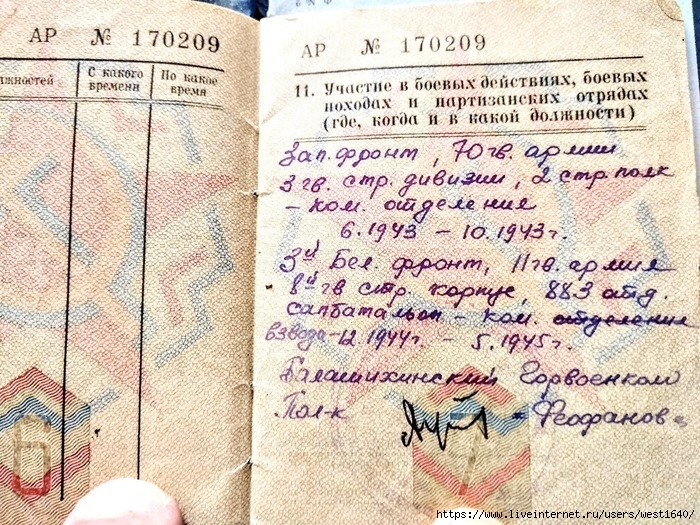 АР № 170209
лжностей
С какого
времени
По какое
время
АР № 170209
11. Участие в боевых действиях, боевых
походах и партизанских отрядах
(где, когда и в какой должности)
Зап. фронт, 70 гв. армии
3 гв. стр. дивизии, 2 стр. полк
– ком. отделения
6.1943 – 10.1943 г.
3й Бел. фронт, 11 гв. армия
8й гв стр. корпус, 883 отд.
сапбатальон – ком. отделения
взвода – 12.1944 г. – 5.1945 г.
Балашихинский Горвоенком
Пол-к "Феофанов"
https://www.liveinternet.ru/users/west1640/